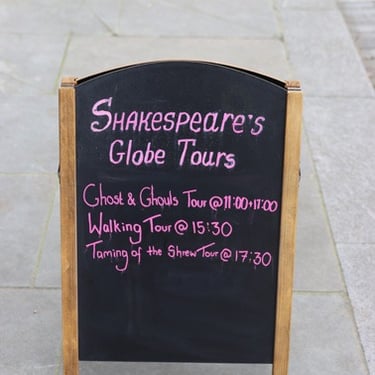 Shakespeare's
Globe Tours
Ghost & Ghouls Tour @ 11:00+17:00
Walking Tour @ 15:30
Taming of the Shrew Tour @ 17:30